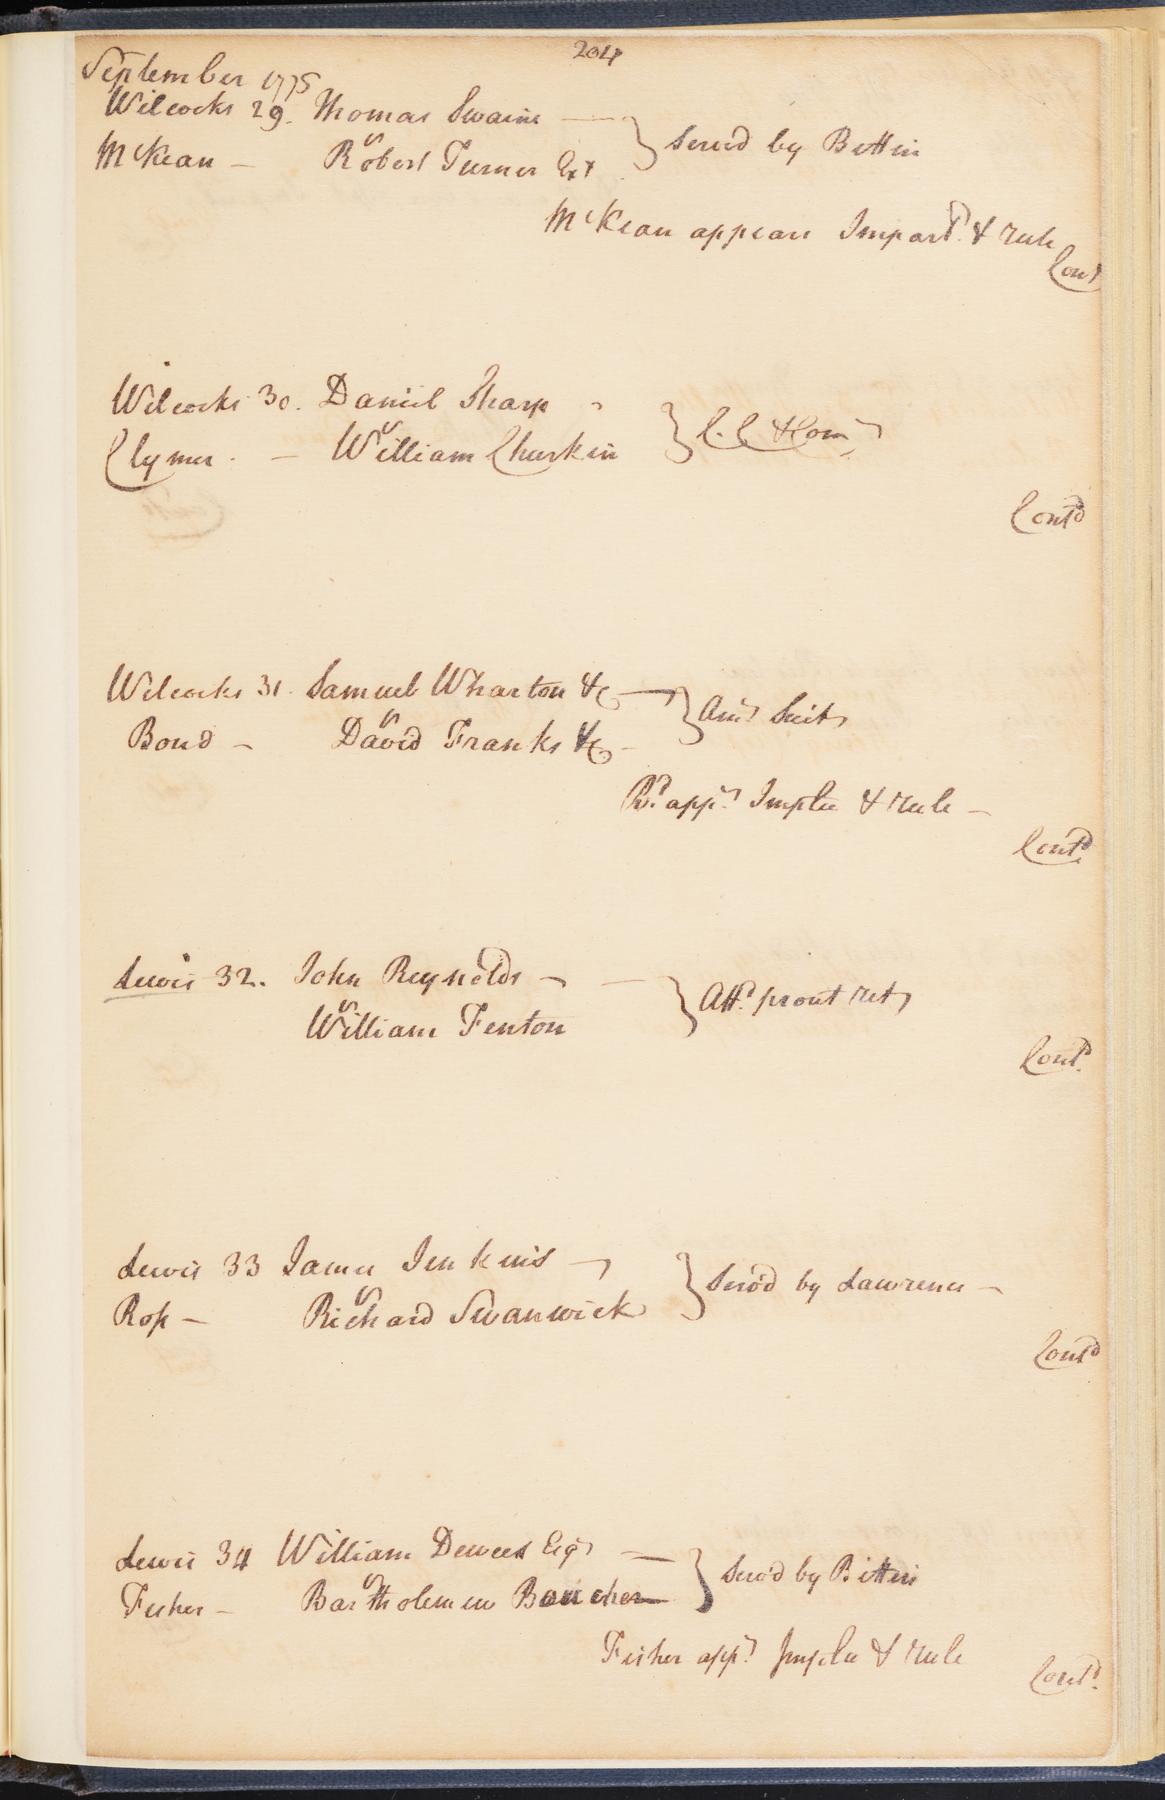 204
September 1775
Wilcocks 29. Thomas Swaine — } Served by Bittin
vs
McKean — Robert Turner Ext
McKean appears Imparl. & rule
Cont
Wilcocks 30. Daniel Sharp } C. C. & Com
vs
Clymer. — William Churkin
Contd
Wilcocks 31. Samuel Wharton &c — } Am. Suit
vs
Bond — David Franks &c —
Bd. app. Implce & rule —
Contd
Lewis 32. John Reynolds — — } Attd. prout ret
vs
William Fenton
Contd
Lewis 33 James Jenkins } Serv'd by Lawrence —
vs
Ross — Richard Swanwick
Contd
Lewis 34 William Dewees Esqr — } Serv'd by Bittin
vs
Fisher — Bartholemew Baucher
Fisher app. Implce & rule
Contd.